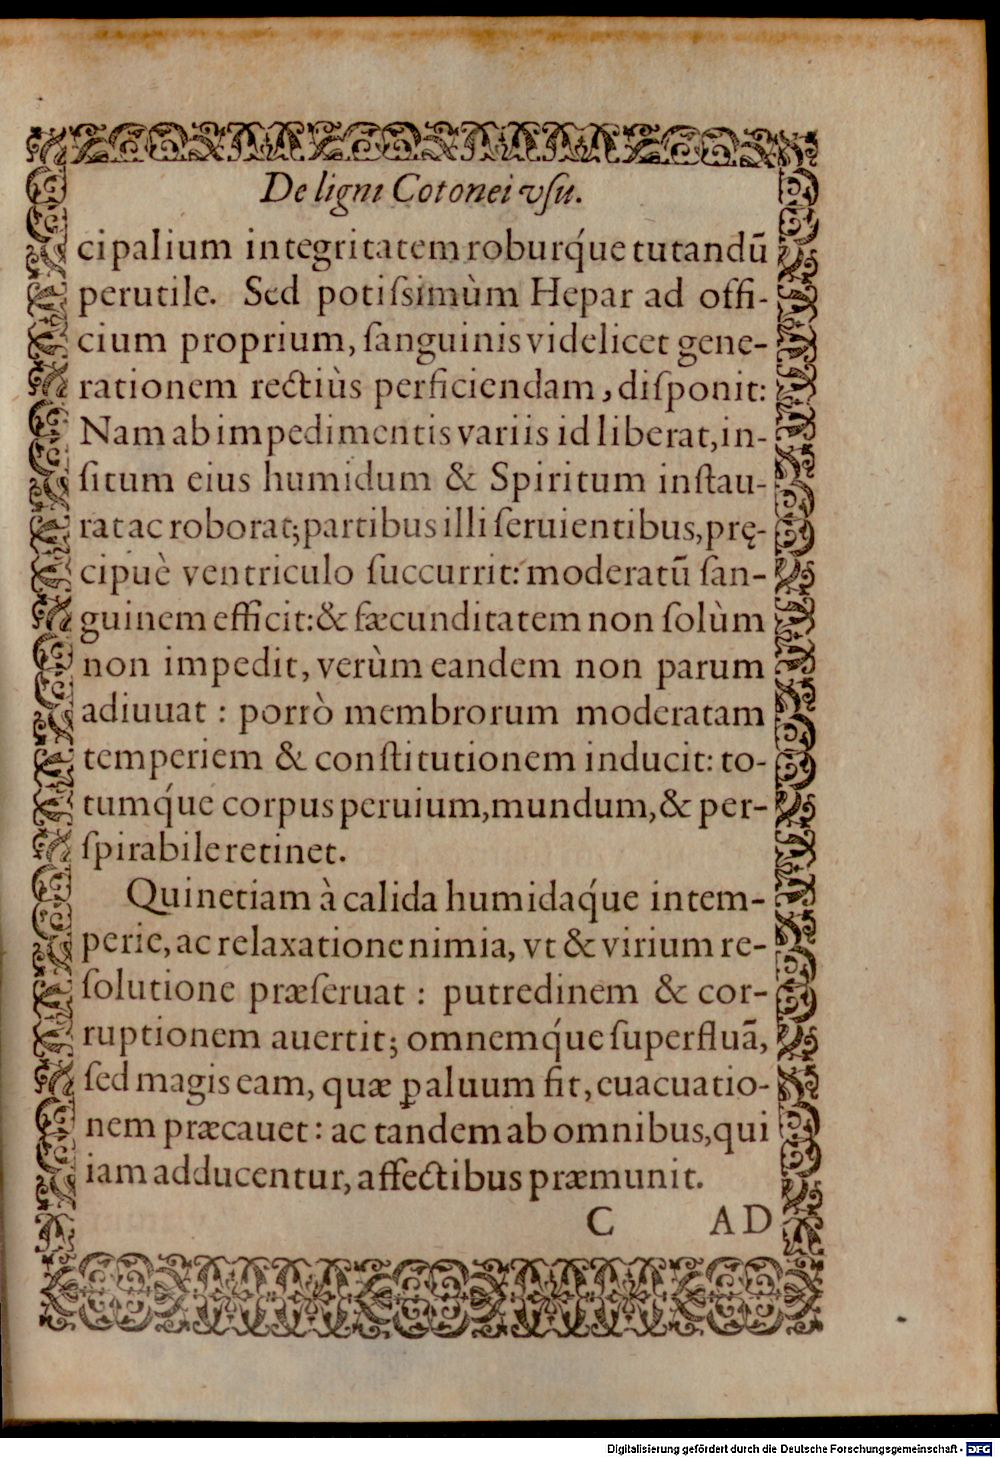 De ligni Cotonei vſu.
cipalium integritatem roburq́ue tutandū
perutile. Sed potiſsimùm Hepar ad offi-
cium proprium, ſanguinis videlicet gene-
rationem rectiùs perficiendam, diſponit:
Nam ab impedimentis variis id liberat, in-
ſitum eius humidum & Spiritum inſtau-
rat ac roborat; partibus illi ſeruientibus, prę-
cipuè ventriculo ſuccurrit: moderatū ſan-
guinem efficit: & fæcunditatem non ſolùm
non impedit, verùm eandem non parum
adiuuat : porrò membrorum moderatam
temperiem & conſtitutionem inducit: to-
tumq́ue corpus peruium, mundum, & per-
ſpirabile retinet.
Quinetiam à calida humidaq́ue intem-
perie, ac relaxatione nimia, vt & virium re-
ſolutione præſeruat : putredinem & cor-
ruptionem auertit; omnemq́ue ſuperfluā,
ſed magis eam, quæ ꝑ aluum fit, euacuatio-
nem præcauet : ac tandem ab omnibus, qui
iam adducentur, affectibus præmunit.
C AD
Digitalisierung gefördert durch die Deutsche Forschungsgemeinschaft - DFG